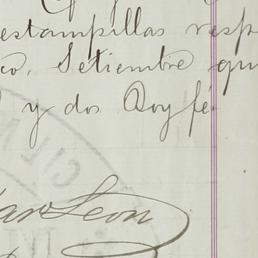 estampillas resp
co, Setiembre qu
y dos Doy fé
Leon